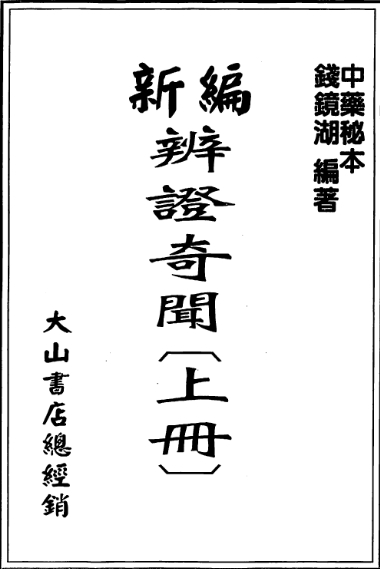 中藥秘本
錢鏡湖 編著
新編
辨證奇聞〔上冊〕
大山書店總經銷